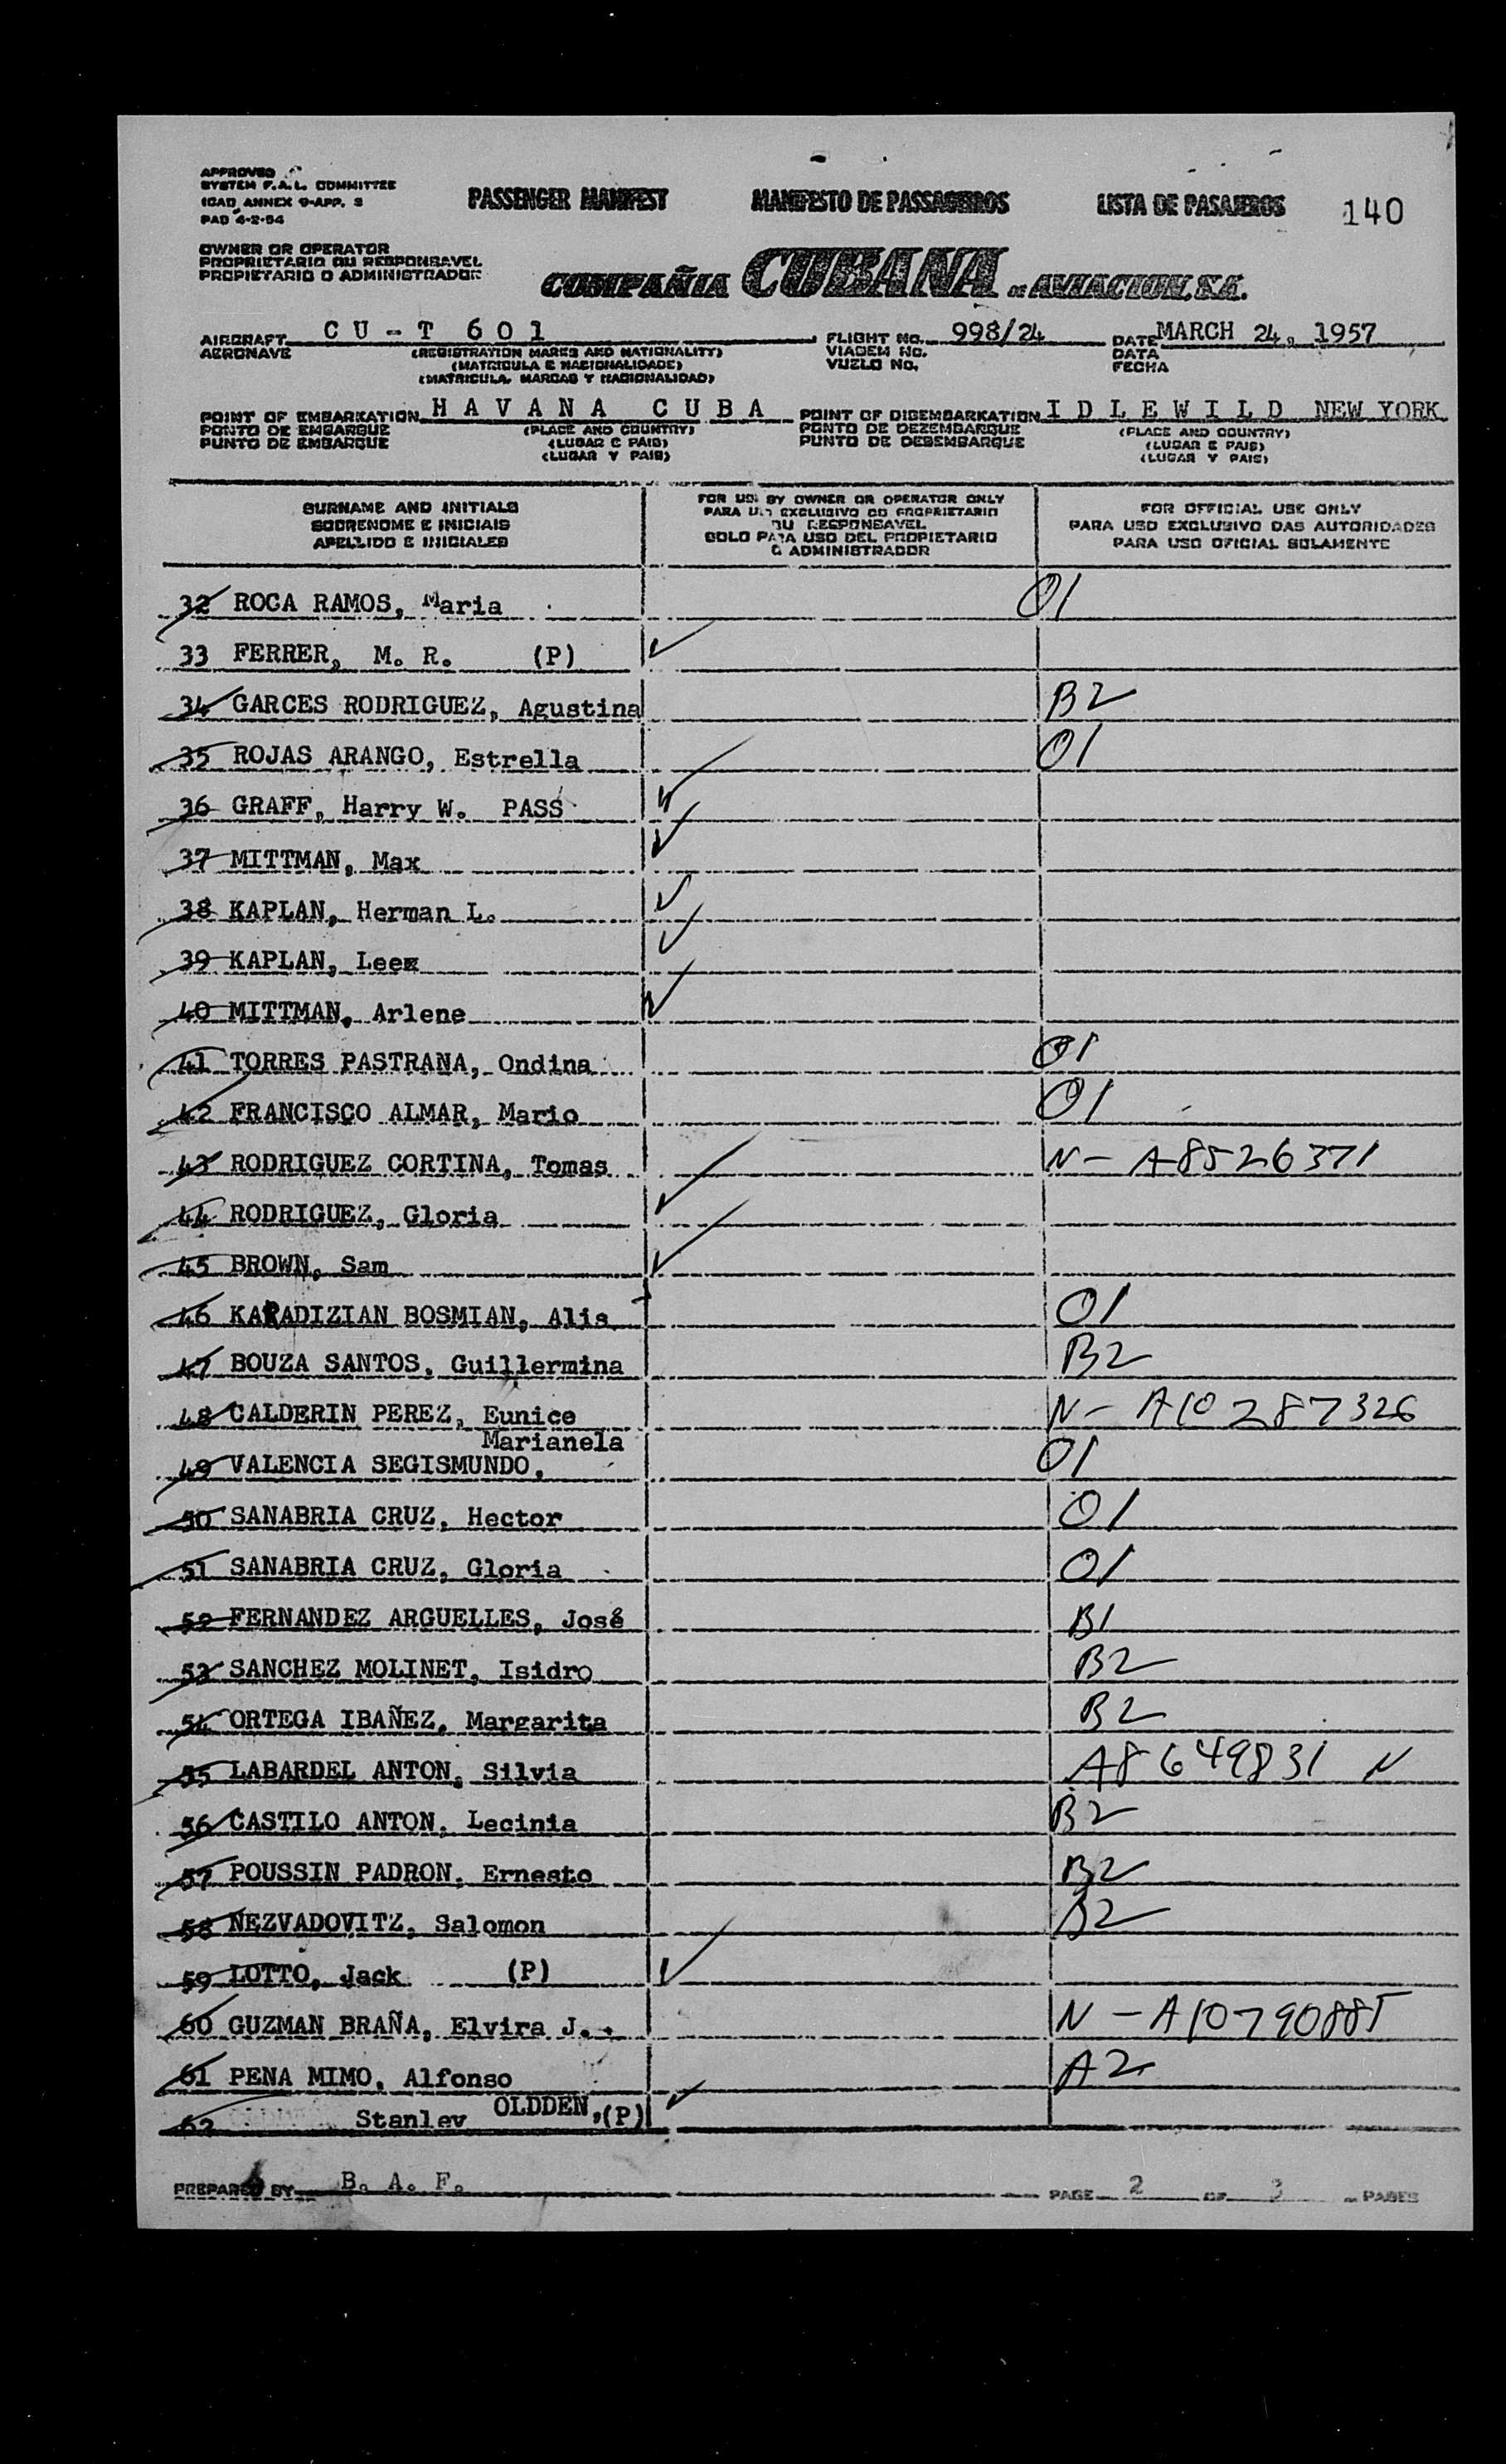 APPROVED
SYSTEM F.A.L. COMMITTEE
ICAO ANNEX 9-APP. 3
PAD 4-2-54
PASSENGER MANIFEST MANIFESTO DE PASSAGEIROS LISTA DE PASAJEROS 140
OWNER OR OPERATOR
PROPRIETARIO OU RESPONSAVEL
PROPIETARIO O ADMINISTRADOR
COMPAÑIA CUBANA DE AVIACION, S.A.
AIRCRAFT CU-T 601 FLIGHT NO. 998/24 DATE MARCH 24, 1957
AERONAVE (REGISTRATION MARKS AND NATIONALITY) VIAGEM NO. DATA
(MATRICULA E NACIONALIDADE) VUELO NO. FECHA
(MATRICULA, MARCAS Y NACIONALIDAD)
POINT OF EMBARKATION HAVANA CUBA POINT OF DISEMBARKATION IDLEWILD NEW YORK
PONTO DE EMBARQUE (PLACE AND COUNTRY) PONTO DE DEZEMBARQUE (PLACE AND COUNTRY)
PUNTO DE EMBARQUE (LUGAR E PAIS) PUNTO DE DESEMBARQUE (LUGAR E PAIS)
(LUGAR Y PAIS) (LUGAR Y PAIS)
SURNAME AND INITIALS
SOBRENOME E INICIAIS
APELLIDO E INICIALES
FOR USE BY OWNER OR OPERATOR ONLY
PARA USO EXCLUSIVO DO PROPRIETARIO
OU RESPONSAVEL
SOLO PARA USO DEL PROPIETARIO
O ADMINISTRADOR
FOR OFFICIAL USE ONLY
PARA USO EXCLUSIVO DAS AUTORIDADES
PARA USO OFICIAL SOLAMENTE
32 ROCA RAMOS, Maria 01
33 FERRER, M. R. (P) ✓
34 GARCES RODRIGUEZ, Agustina B2
35 ROJAS ARANGO, Estrella 01
36 GRAFF, Harry W. PASS ✓
37 MITTMAN, Max ✓
38 KAPLAN, Herman L. ✓
39 KAPLAN, Lee ✓
40 MITTMAN, Arlene ✓
41 TORRES PASTRANA, Ondina 01
42 FRANCISCO ALMAR, Mario 01
43 RODRIGUEZ CORTINA, Tomas N- A8526371
44 RODRIGUEZ, Gloria ✓
45 BROWN, Sam ✓
46 KARADIZIAN BOSMIAN, Alis 01
47 BOUZA SANTOS, Guillermina B2
48 CALDERIN PEREZ, Eunice N- A10287326
Marianela
49 VALENCIA SEGISMUNDO, 01
50 SANABRIA CRUZ, Hector 01
51 SANABRIA CRUZ, Gloria 01
52 FERNANDEZ ARGUELLES, José B1
53 SANCHEZ MOLINET, Isidro B2
54 ORTEGA IBAÑEZ, Margarita B2
55 LABARDEL ANTON, Silvia A8649831 N
56 CASTILO ANTON, Lecinia B2
57 POUSSIN PADRON, Ernesto B2
58 NEZVADOVITZ, Salomon B2
59 LOTTO, Jack (P) ✓
60 GUZMAN BRAÑA, Elvira J. N - A10790885
61 PENA MIMO, Alfonso A2
62 Stanley OLDDEN, (P) ✓
PREPARED BY B. A. F. PAGE 2 OF 3 PAGES